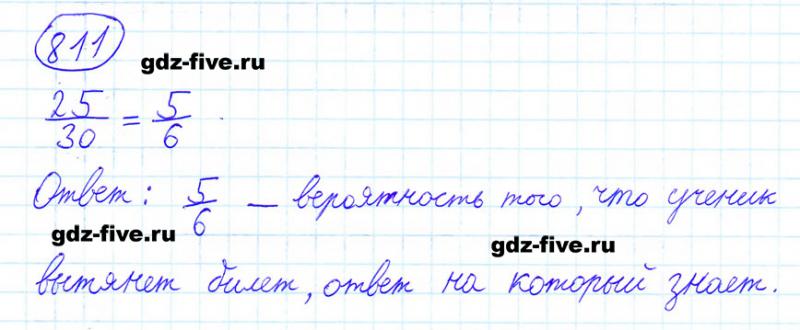 811
gdz-five.ru
25/30 = 5/6
Ответ: 5/6 — вероятность того, что ученик
gdz-five.ru
gdz-five.ru
вытянет билет, ответ на который знает.